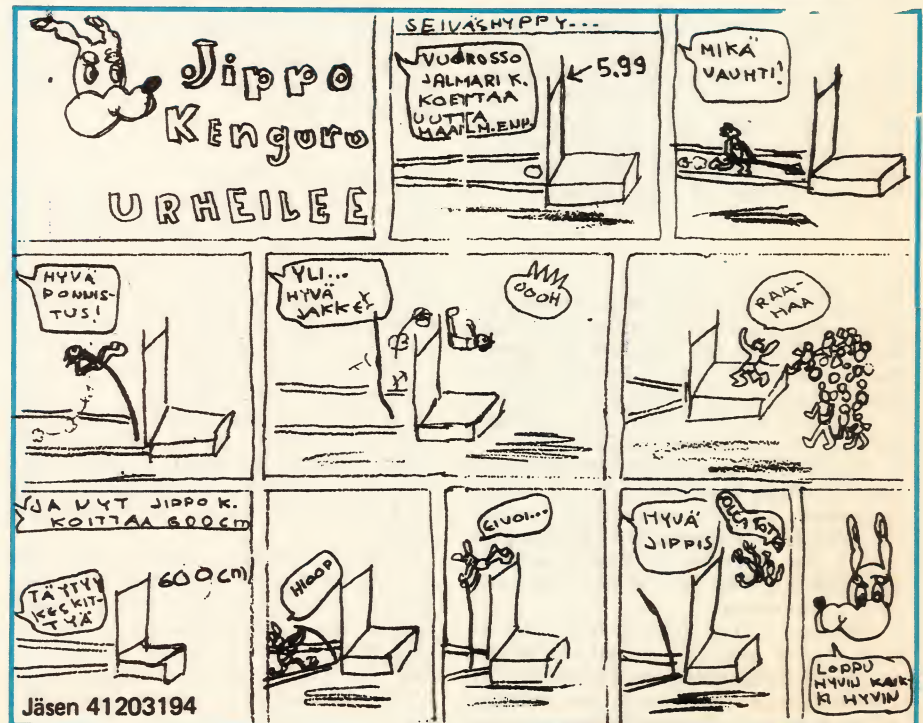 Jippo
Kenguru
URHEILEE
SEIVÄSHYPPY...
VUOROSSO
JALMARI K.
KOETTAA
UUTTA
MAAILM.ENN.
5.99
MIKÄ
VAUHTI!
HYVÄ
PONNIS-
TUS!
YLI...
HYVÄ
JAKKE!
OOOH
RAA-
HAA
JA NYT JIPPO K.
KOITTAA 600cm
TÄYTYY
KESKIT-
TYÄ
600cm
HIOOP
EIVOI...
HYVÄ
JIPPIS
LOPPU
HYVIN KAIK-
KI HYVIN
Jäsen 41203194